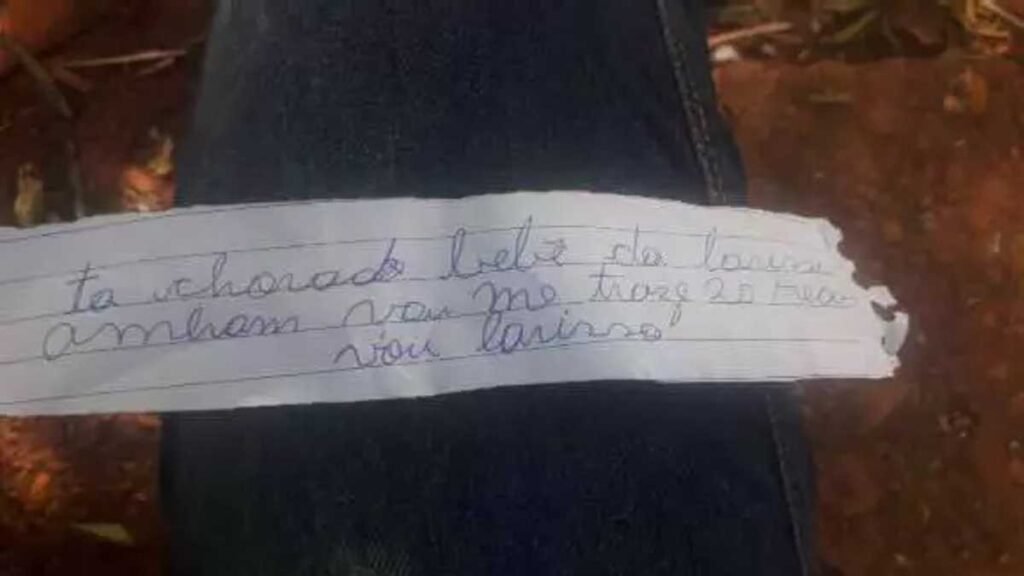 ta chorado bebê da larissa
amham vou me traze 20 reas
vou larissa